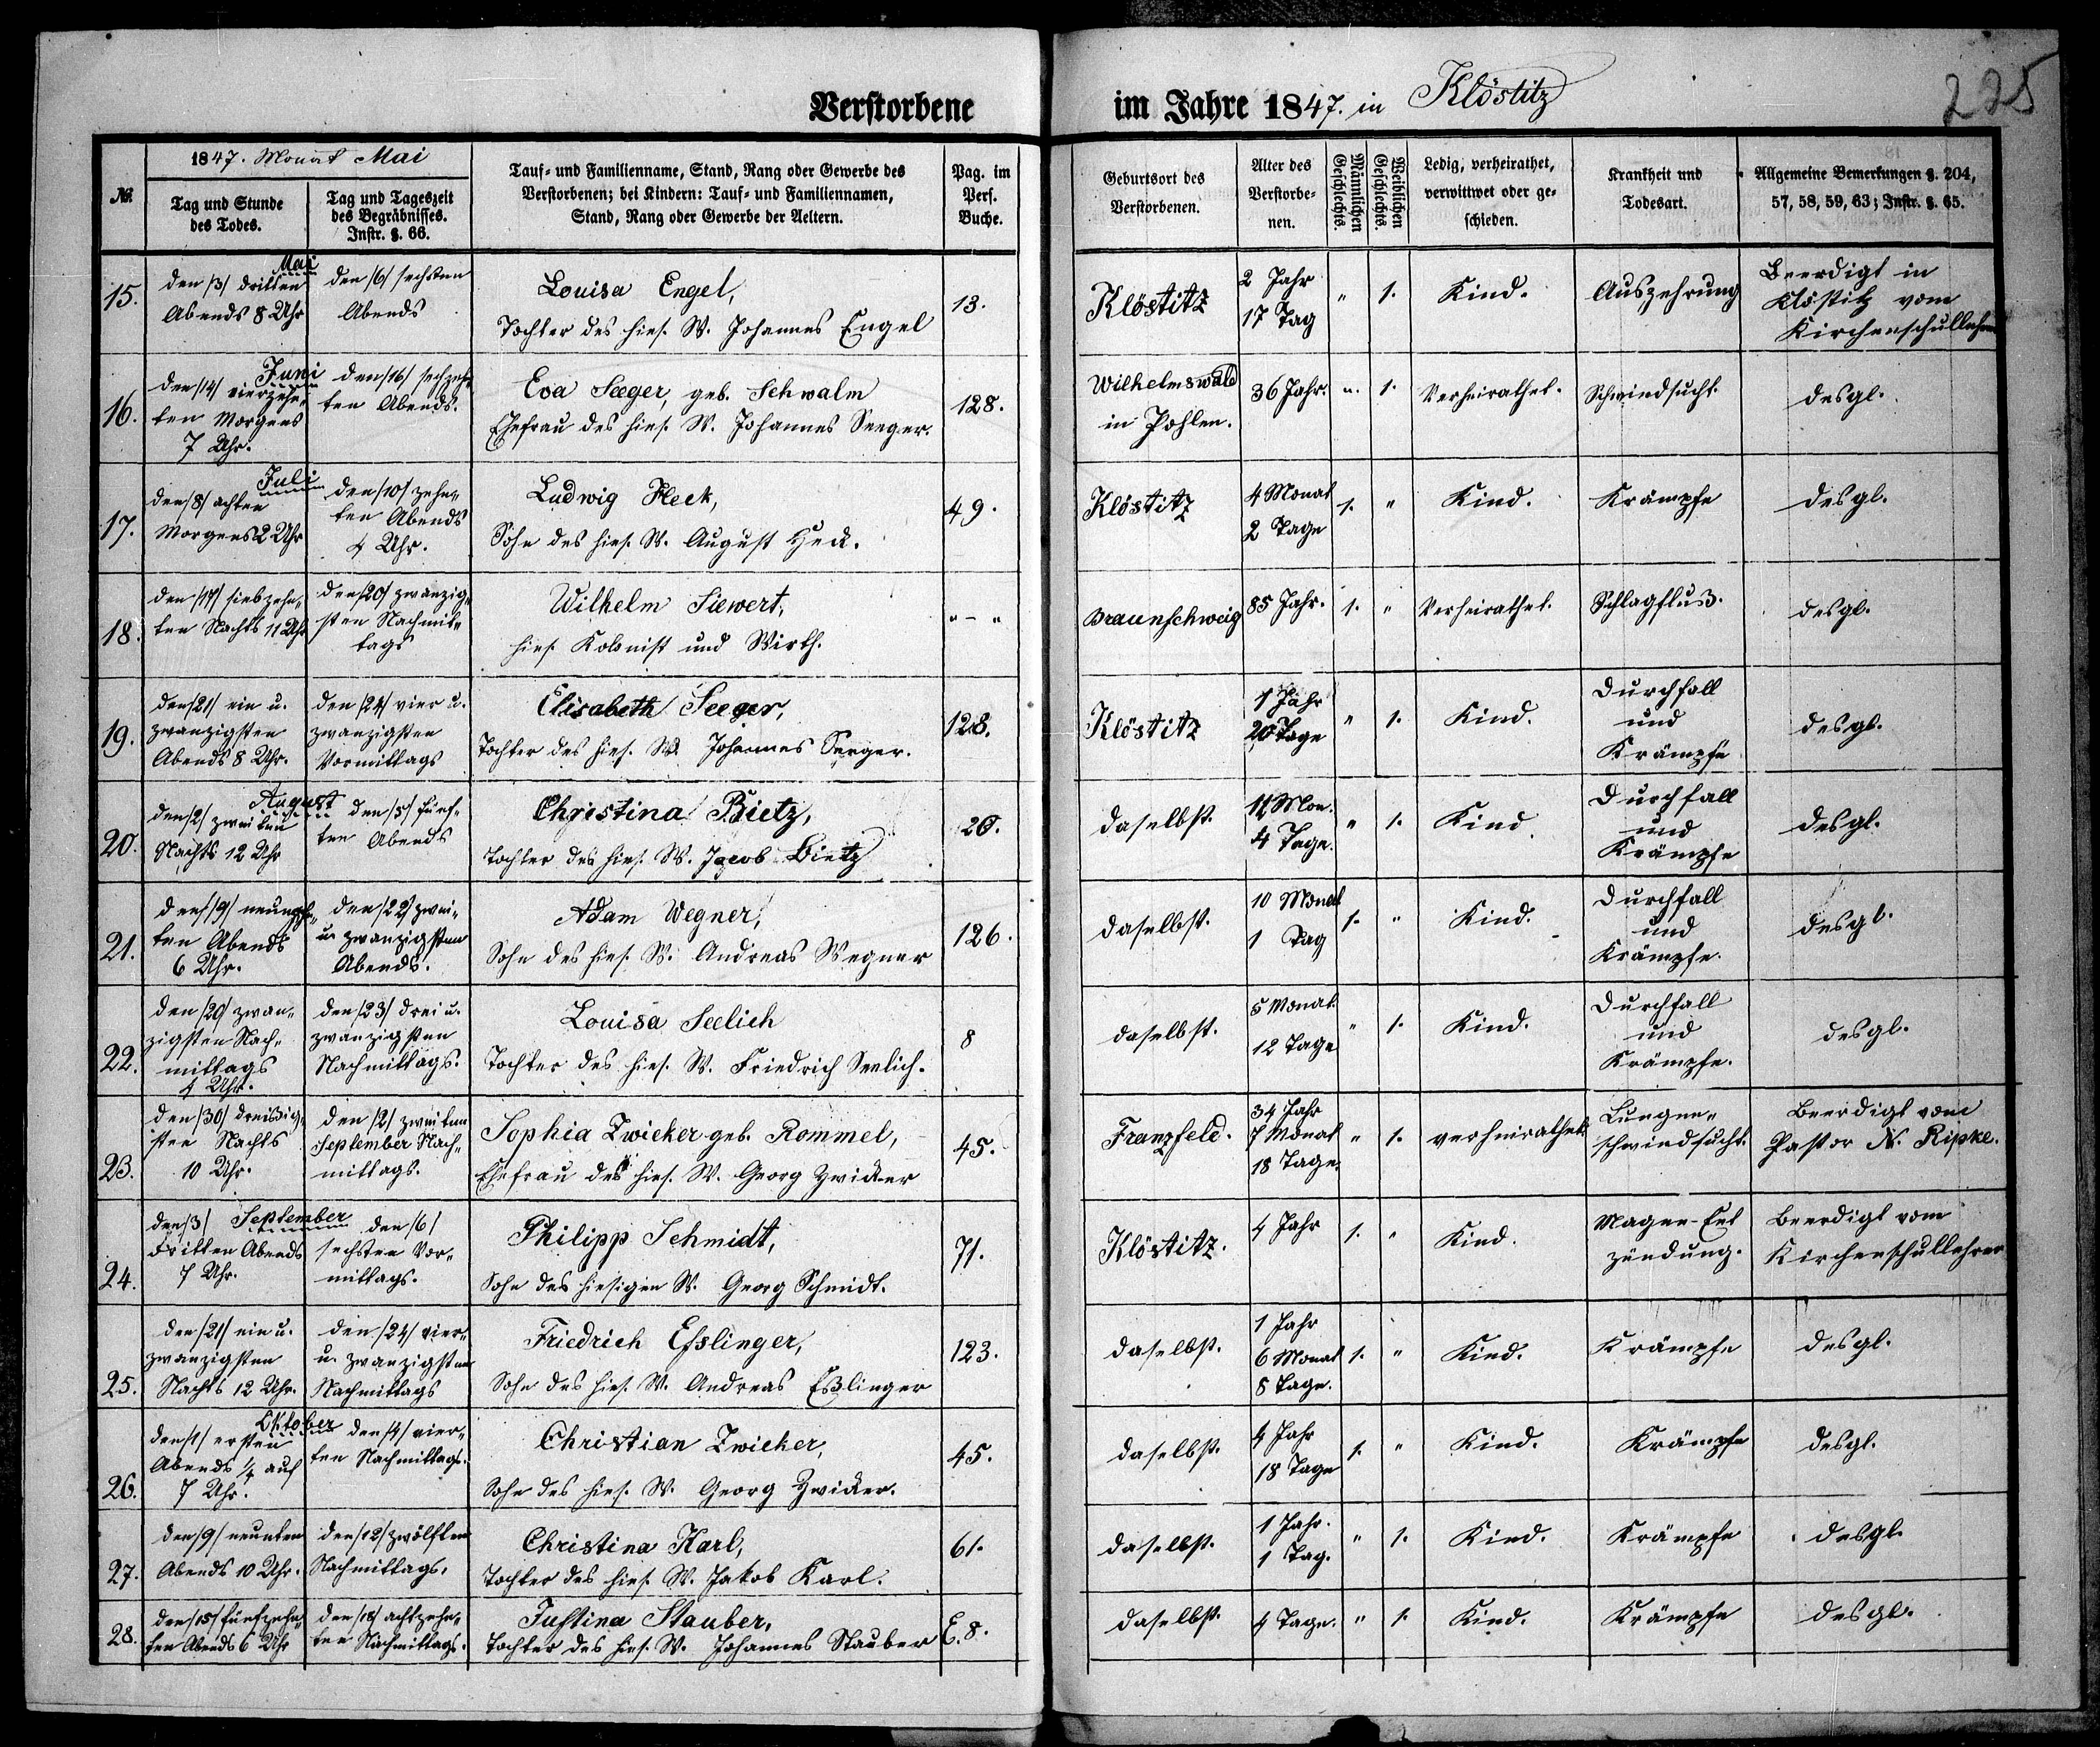 Verstorbene im Jahre 1847. in Klöstitz
225
1847. Monat Mai
No.
Tag und Stunde
des Todes.
Tag und Tageszeit
des Begräbnisses.
Instr. §. 66.
Tauf- und Familienname, Stand, Rang oder Gewerbe des
Verstorbenen; bei Kindern: Tauf- und Familiennamen,
Stand, Rang oder Gewerbe der Aeltern.
Pag. im
Pers.
Buche.
Geburtsort des
Verstorbenen.
Alter des
Verstorbe-
nen.
Männlichen
Geschlechts.
Weiblichen
Geschlechts.
Ledig, verheirathet,
verwittwet oder ge-
schieden.
Krankheit und
Todesart.
Allgemeine Bemerkungen §. 204,
57, 58, 59, 63; Instr. §. 65.
15.
Mai
den /3/ dritten
Abends 8 Uhr
den /6/ sechsten
Abends
Louisa Engel,
Tochter des hies. W. Johannes Engel
13.
Klöstitz
2 Jahr
17 Tag
" 1.
Kind.
Auszehrung
Beerdigt in
Klöstitz vom
Kirchenschullehrer
16.
Juni
den /14/ vierzehn-
ten Morgens
7 Uhr.
den /16/ sechzehn-
ten Abends.
Eva Seeger, geb. Schwalm
Ehefrau des hies. W. Johannes Seeger.
128.
Wilhelmswald
in Pohlen.
36 Jahr.
" 1.
Verheirathet.
Schwindsucht.
desgl.
17.
Juli
den /8/ achten
Morgens 2 Uhr
den /10/ zehn-
ten Abends
4 Uhr.
Ludwig Heck,
Sohn des hies. W. August Heck.
49.
Klöstitz
4 Monat
2 Tage
1. "
Kind.
Krämpfe
desgl.
18.
den /17/ siebzehn-
ten Nachts 11 Uhr
den /20/ zwanzig-
sten Nachmit-
tags
Wilhelm Siewert,
hies. Kolonist und Wirth.
" - "
Braunschweig
85 Jahr.
1. "
Verheirathet.
Schlagfluß.
desgl.
19.
den /21/ ein u.
zwanzigsten
Abends 8 Uhr.
den /24/ vier u.
zwanzigsten
Vormittags
Elisabeth Seeger,
Tochter des hies. W. Johannes Seeger.
128.
Klöstitz
1 Jahr
20 Tage
" 1.
Kind.
Durchfall
und
Krämpfe
desgl.
20.
August
den /2/ zweiten
Nachts 12 Uhr
den /5/ fünf-
ten Abends
Christina Bietz,
Tochter des hies. W. Jacob Bietz
20.
daselbst.
11 Mon.
4 Tage.
" 1.
Kind.
Durchfall
und
Krämpfe
desgl.
21.
den /19/ neunzehn-
ten Abends
6 Uhr.
den /22/ zwei-
u. zwanzigsten
Abends.
Adam Wegner,
Sohn des hies. W. Andreas Wegner
126.
daselbst.
10 Monat
1 Tag
1. "
Kind.
Durchfall
und
Krämpfe.
desgl.
22.
den /20/ zwan-
zigsten Nach-
mittags
4 Uhr.
den /23/ drei u.
zwanzigsten
Nachmittags.
Louisa Seelich
Tochter des hies. W. Friedrich Seelich.
8
daselbst.
5 Monat.
12 Tage
" 1.
Kind.
Durchfall
und
Krämpfe.
desgl.
23.
den /30/ dreißig-
sten Nachts
10 Uhr.
den /2/ zweiten
September Nach-
mittags.
Sophia Zwicker geb. Rommel,
Ehefrau des hies. W. Georg Zwicker
45.
Franzfeld.
34 Jahr
7 Monat
18 Tage.
" 1.
verheirathet.
Lungen-
schwindsucht.
Beerdigt vom
Pastor N. Ripke.
24.
September
den /3/
dritten Abends
7 Uhr.
den /6/
sechsten Vor-
mittags.
Philipp Schmidt,
Sohn des hiesigen W. Georg Schmidt.
71.
Klöstitz.
4 Jahr
1. "
Kind.
Magen-Ent
zündung.
Beerdigt vom
Kirchenschullehrer
25.
den /21/ ein u.
zwanzigsten
Nachts 12 Uhr.
den /24/ vier-
u. zwanzigsten
Nachmittags
Friedrich Eßlinger,
Sohn des hies. W. Andreas Eßlinger
123.
daselbst.
1 Jahr
6 Monat
8 Tage.
1. "
Kind.
Krämpfe
desgl.
26.
Oktober
den /1/ ersten
Abends 1/4 auf
7 Uhr.
den /4/ vier-
ten Nachmittags.
Christian Zwicker,
Sohn des hies. W. Georg Zwicker.
45.
daselbst.
4 Jahr
18 Tage
1. "
Kind.
Krämpfe
desgl.
27.
den /9/ neunten
Abends 10 Uhr.
den /12/ zwölften
Nachmittags.
Christina Karl,
Tochter des hies. W. Jakob Karl.
61.
daselbst.
1 Jahr.
1 Tag.
" 1.
Kind.
Krämpfe
desgl.
28.
den /15/ fünfzehn-
ten Abends 6 Uhr
den /18/ achtzehn-
ten Nachmittags.
Justina Stauber,
Tochter des hies. W. Johannes Stauber
E. 8.
daselbst.
4 Tage.
" 1.
Kind.
Krämpfe
desgl.